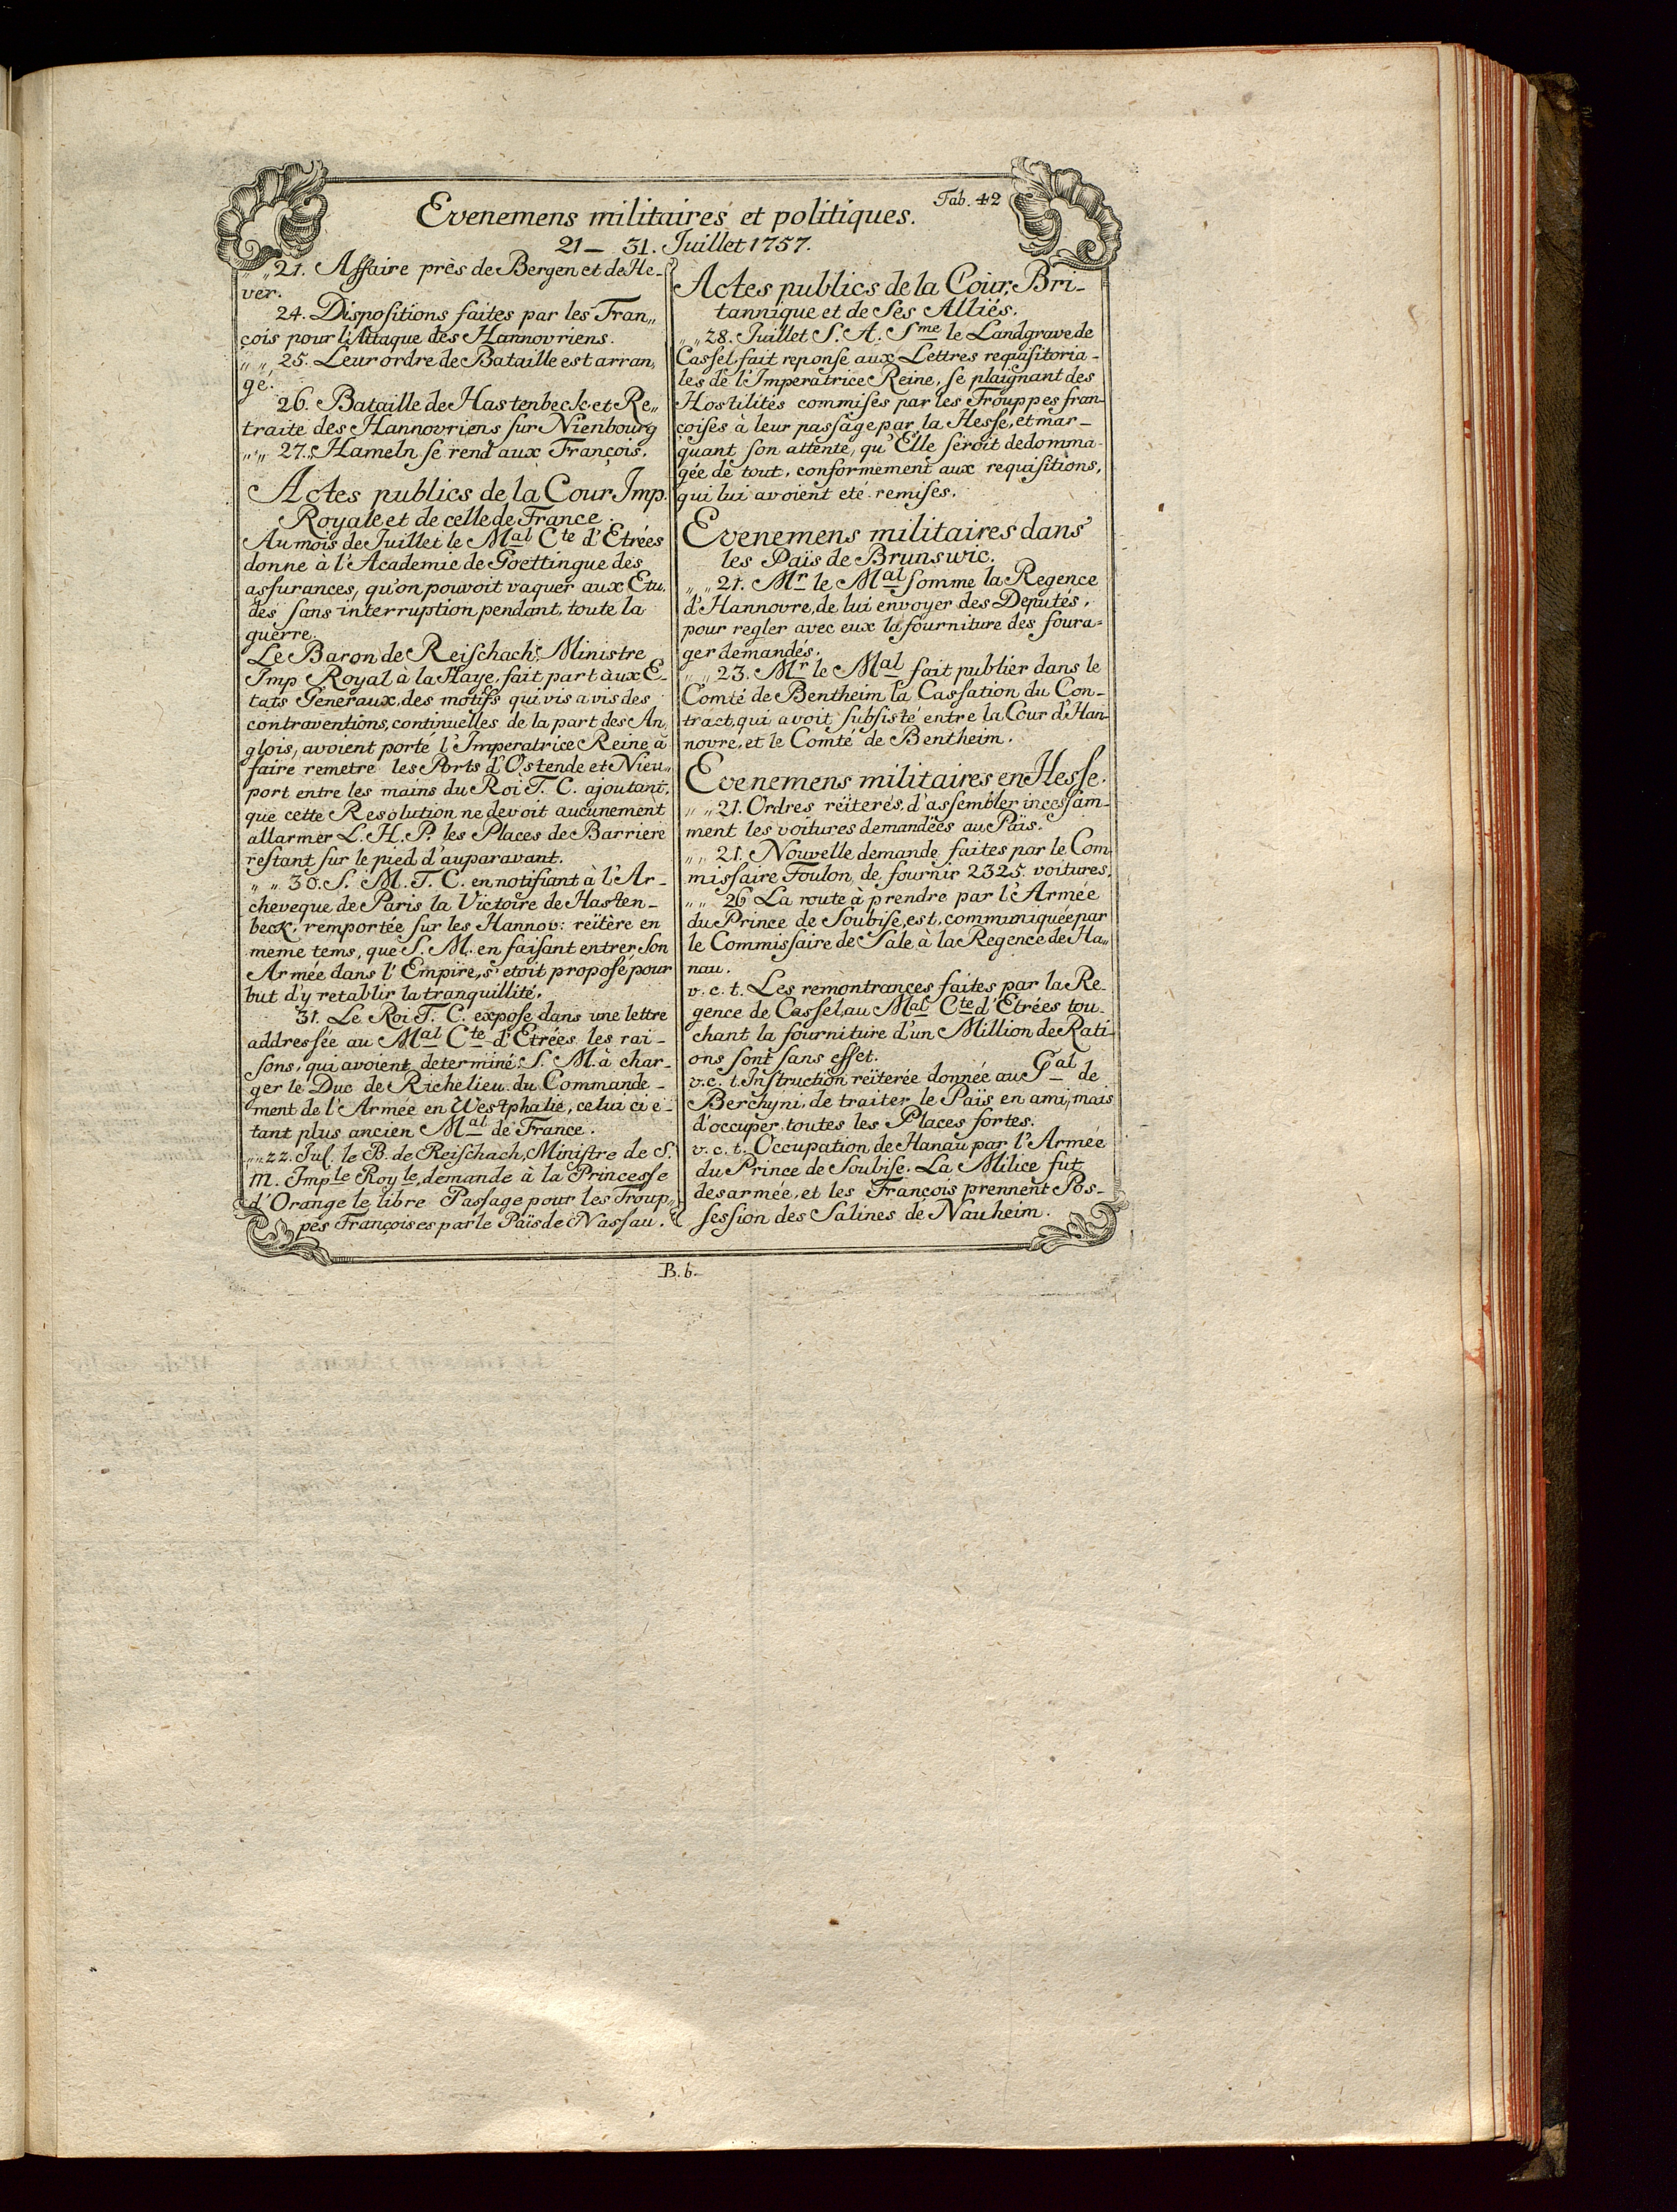 Tab. 42
Evenemens militaires et politiques.
21 – 31. Juillet 1757.
„ „ 21. Affaire près de Bergen et de He-
ver.
24. Dispositions faites par les Fran„
çois pour l'Attaque des Hannovriens.
„ „ 25. Leur ordre de Bataille est arran„
gé.
26. Bataille de Hastenbeck et Re„
traite des Hannovriens sur Nienbourg
„ „ 27. Hameln se rend aux François.
Actes publics de la Cour Imp.
Royale et de celle de France.
Au mois de Juillet le Mal Cte d'Etrées
donne à l'Academie de Goettingue des
assurances, qu'on pouvoit vaquer aux Etu„
des sans interruption pendant, toute la
guerre.
Le Baron de Reischach, Ministre
Imp Royal à la Haye, fait part aux E-
tats Generaux, des motifs qui vis a vis des
contraventions, continuelles de la part des An„
glois, avoient porté l'Imperatrice Reine à
faire remetre les Ports d'Ostende et Nieu„
port entre les mains du Roi T. C. ajoutant,
que cette Resolution ne devoit aucunement
allarmer L. H. P. les Places de Barriere
restant sur le pied d'auparavant.
„ „ 30. S. M. T. C. en notifiant à l'Ar-
cheveque de Paris la Victoire de Hasten-
beck, remportée sur les Hannov: reïtère en
meme tems, que S. M. en faisant entrer son
Armée dans l'Empire, s'etoit proposé pour
but d'y retablir la tranquillité.
31. Le Roi T. C. expose dans une lettre
addressée au Mal Cte d'Etrées les rai-
sons, qui avoient determiné S. M. à char-
ger le Duc de Richelieu du Commande-
ment de l'Armée en Westphalie, celui ci e-
tant plus ancien Mal de France.
„ „ 22. Jul. le B. de Reischach, Ministre de S.
M. Imple Royle, demande à la Princesse
d'Orange le libre Passage pour les Troup„
pes Françoises par le Païs de Nassau.
Actes publics de la Cour Bri-
tannique et de Ses Alliés.
„ „ 28. Juillet S. A. Sme le Landgrave de
Cassel fait reponse aux Lettres requisitoria-
les de l'Imperatrice Reine, se plaignant des
Hostilités commises par les Trouppes fran-
çoises à leur passage par la Hesse, et mar-
quant son attente, qu'Elle seroit dedomma-
gée de tout, conformement aux requisitions,
qui lui avoient eté remises.
Evenemens militaires dans
les Païs de Brunswic.
„ „ 21. Mr le Mal somme la Regence
d'Hannovre, de lui envoyer des Deputés,
pour regler avec eux la fourniture des foura=
ger demandés.
„ „ 23. Mr le Mal fait publier dans le
Comté de Bentheim la Cassation du Con-
tract, qui avoit subsisté entre la Cour d'Han-
novre, et le Comté de Bentheim.
Evenemens militaires en Hesse.
„ „ 21. Ordres reïterés, d'assembler incessam-
ment les voitures demandées au Païs.
„ „ 21. Nouvelle demande faites par le Com-
missaire Foulon, de fournir 2325 voitures.
„ „ 26 La route à prendre par l'Armée
du Prince de Soubise, est, communiquée par
le Commissaire de Sale, à la Regence de Ha„
nau.
v. c. t. Les remontrances faites par la Re-
gence de Cassel, au Mal Cte d'Etrées tou-
chant la fourniture d'un Million de Rati-
ons sont sans effet.
v. c. t. Instruction reïterée donnée au Gal de
Berchyni, de traiter le Païs en ami, mais
d'occuper toutes les Places fortes.
v. c. t. Occupation de Hanau par l'Armée
du Prince de Soubise. La Milice fut
desarmée, et les François prennent Pos-
session des Salines de Nauheim.
B. b.